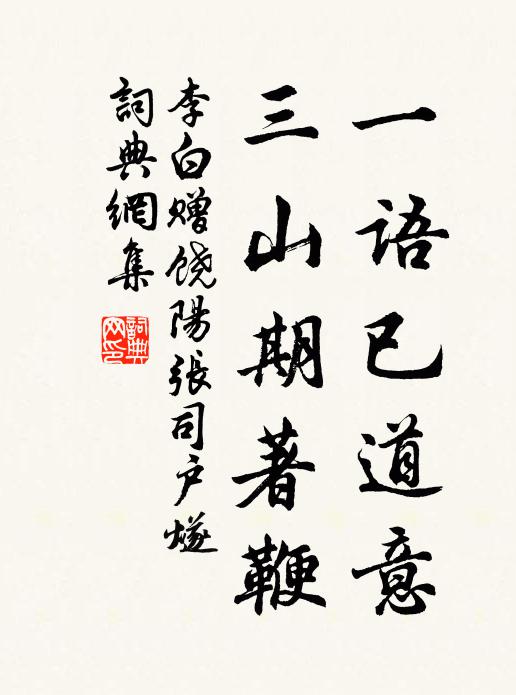 一語已道意
三山期著鞭
李白赠饶陽張司户燧
詞典網集
詞典网印